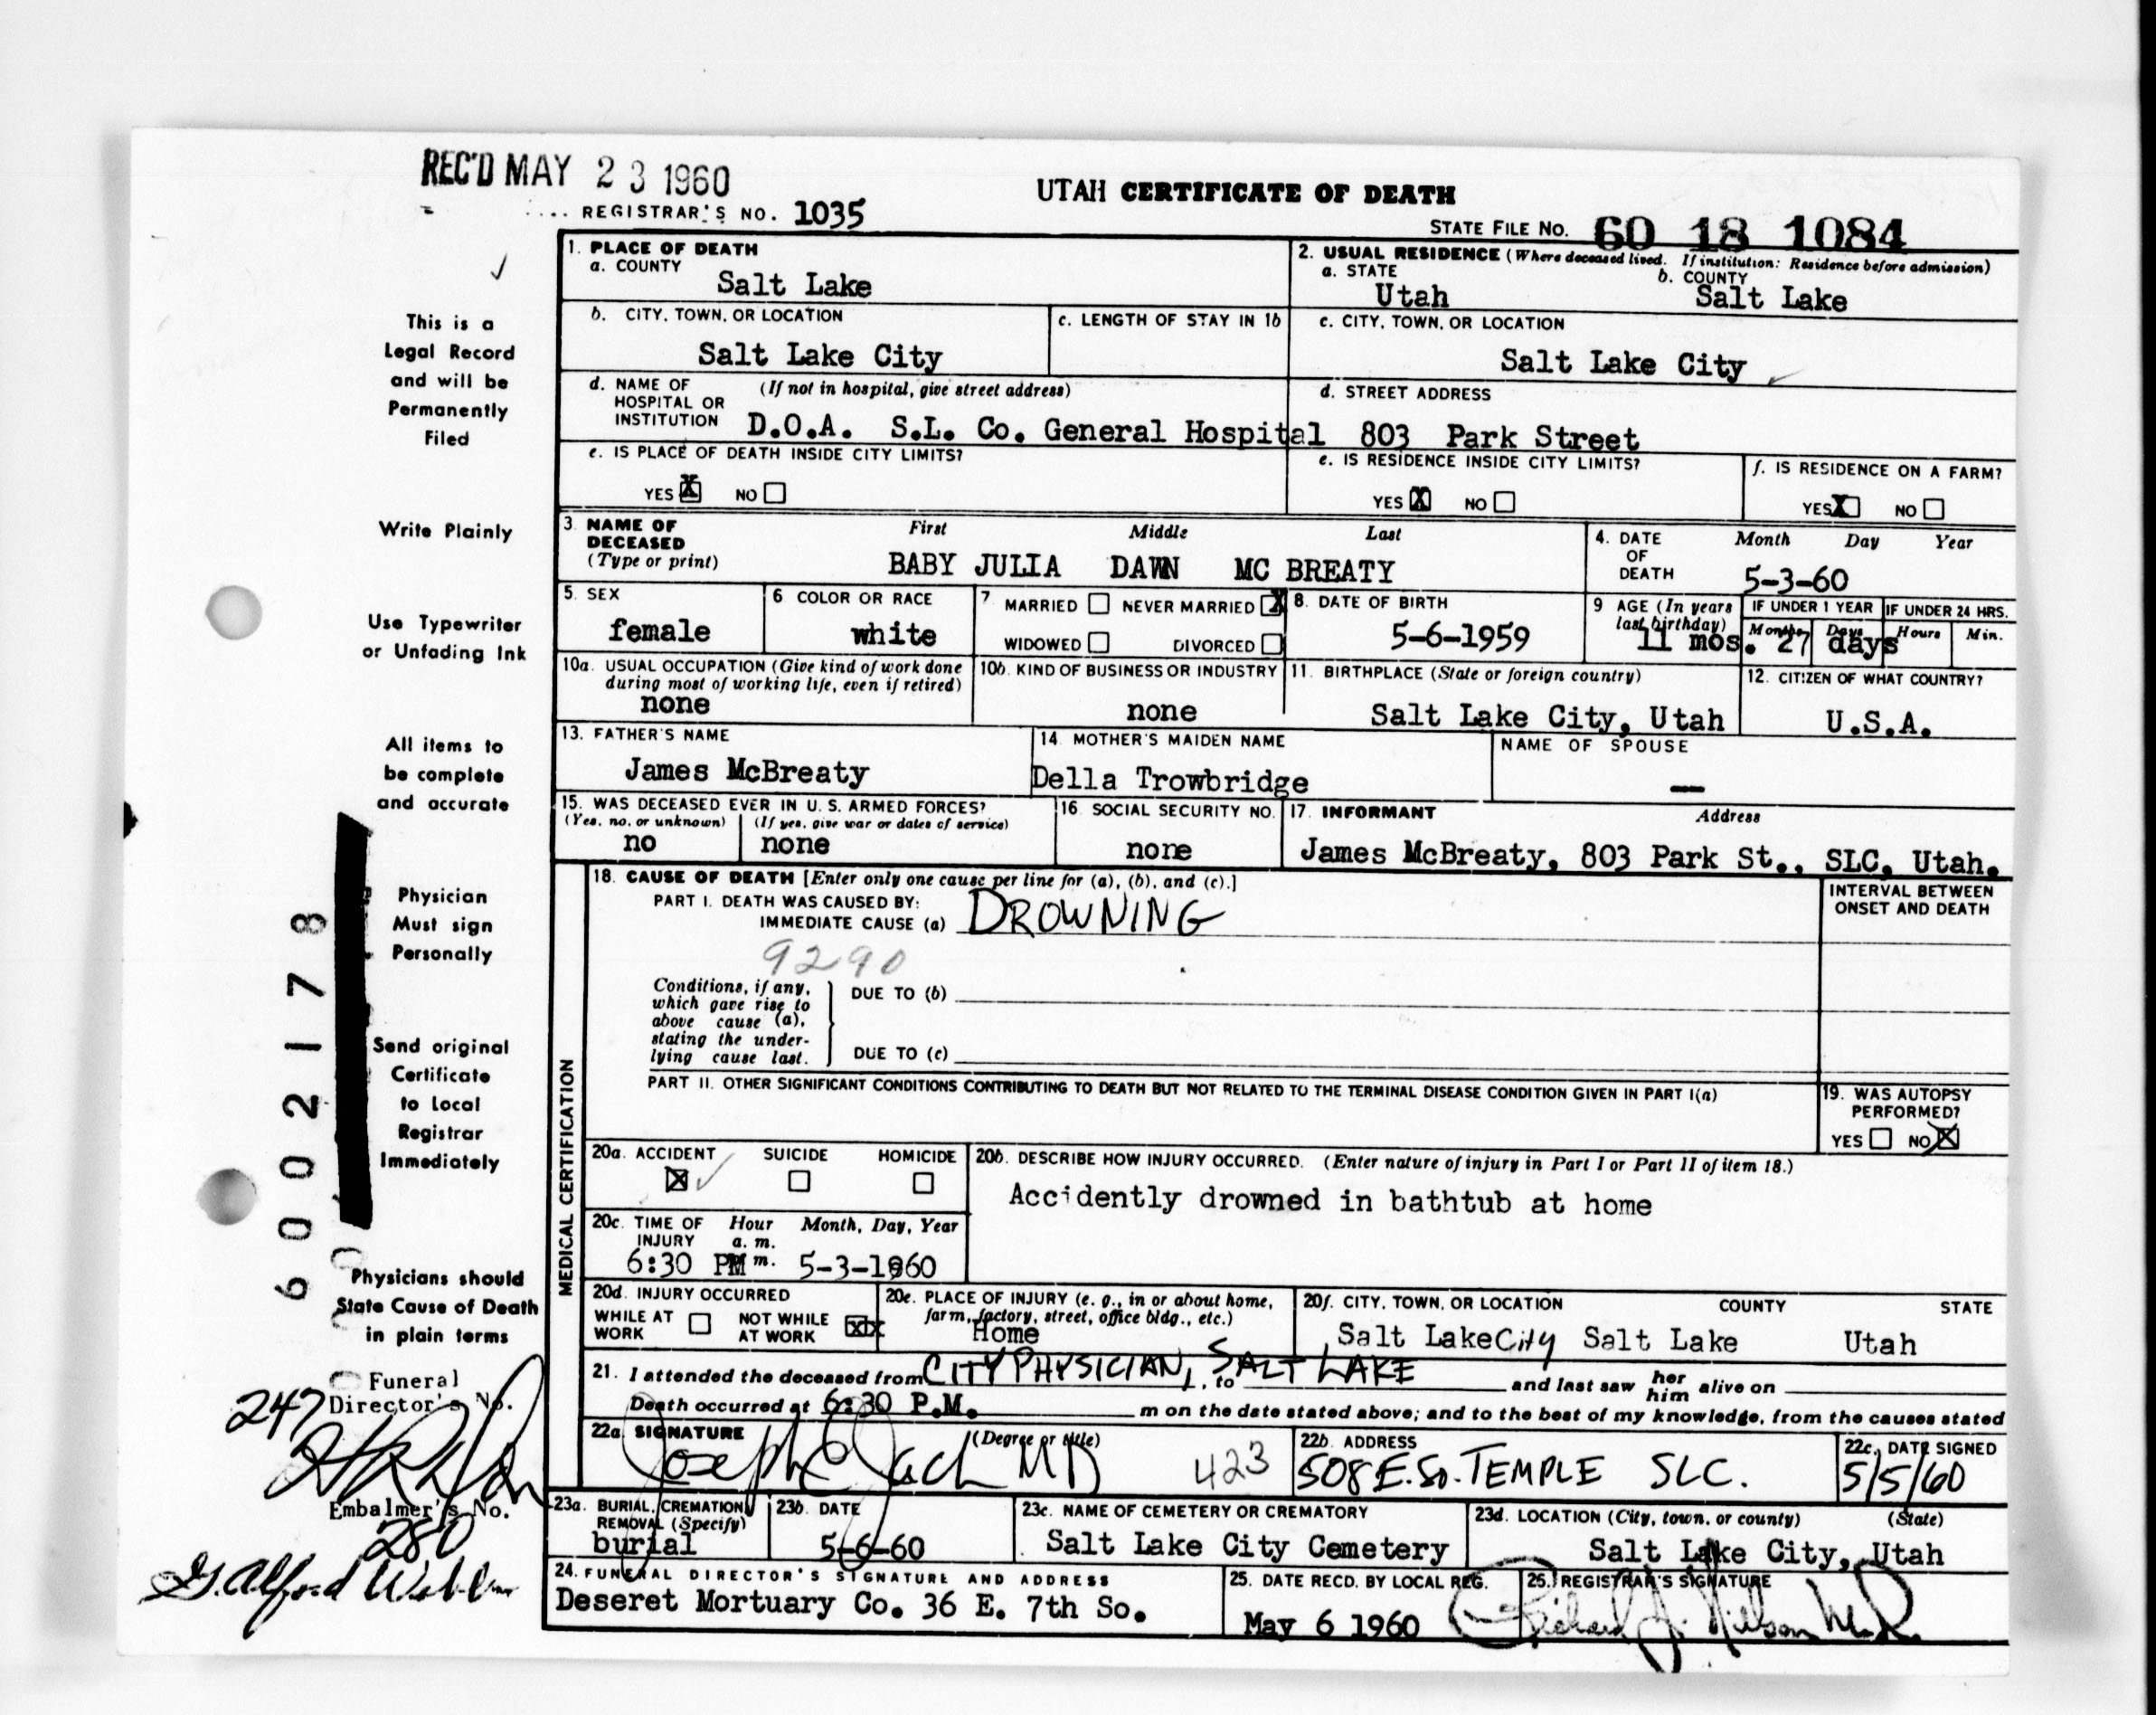 REC'D MAY 23 1960
UTAH CERTIFICATE OF DEATH
REGISTRAR'S NO. 1035
STATE FILE NO. 60 18 1084
1. PLACE OF DEATH
a. COUNTY
Salt Lake
2. USUAL RESIDENCE (Where deceased lived. If institution: Residence before admission)
a. STATE b. COUNTY
Utah Salt Lake
b. CITY, TOWN, OR LOCATION
Salt Lake City
c. LENGTH OF STAY IN 1b
c. CITY, TOWN, OR LOCATION
Salt Lake City
d. NAME OF (If not in hospital, give street address)
HOSPITAL OR
INSTITUTION D.O.A. S.L. Co. General Hospital
d. STREET ADDRESS
803 Park Street
e. IS PLACE OF DEATH INSIDE CITY LIMITS?
YES X NO
e. IS RESIDENCE INSIDE CITY LIMITS?
YES X NO
f. IS RESIDENCE ON A FARM?
YES X NO
3. NAME OF DECEASED (Type or print)
First Middle Last
BABY JULIA DAWN MC BREATY
4. DATE OF DEATH
Month Day Year
5-3-60
5. SEX
female
6 COLOR OR RACE
white
7 MARRIED NEVER MARRIED X
WIDOWED DIVORCED
8. DATE OF BIRTH
5-6-1959
9 AGE (In years last birthday)
IF UNDER 1 YEAR IF UNDER 24 HRS.
Months Days Hours Min.
11 mos. 27 days
10a. USUAL OCCUPATION (Give kind of work done
during most of working life, even if retired)
none
10b. KIND OF BUSINESS OR INDUSTRY
none
11. BIRTHPLACE (State or foreign country)
Salt Lake City, Utah
12. CITIZEN OF WHAT COUNTRY?
U.S.A.
13. FATHER'S NAME
James McBreaty
14. MOTHER'S MAIDEN NAME
Della Trowbridge
NAME OF SPOUSE
—
15. WAS DECEASED EVER IN U. S. ARMED FORCES?
(Yes, no, or unknown) (If yes, give war or dates of service)
no none
16. SOCIAL SECURITY NO.
none
17. INFORMANT Address
James McBreaty, 803 Park St., SLC, Utah.
MEDICAL CERTIFICATION
18. CAUSE OF DEATH [Enter only one cause per line for (a), (b), and (c).]
PART I. DEATH WAS CAUSED BY:
IMMEDIATE CAUSE (a) DROWNING
INTERVAL BETWEEN
ONSET AND DEATH
9290
Conditions, if any,
which gave rise to
above cause (a),
stating the under-
lying cause last.
DUE TO (b)
DUE TO (c)
PART II. OTHER SIGNIFICANT CONDITIONS CONTRIBUTING TO DEATH BUT NOT RELATED TO THE TERMINAL DISEASE CONDITION GIVEN IN PART I(a)
19. WAS AUTOPSY
PERFORMED?
YES NO X
20a. ACCIDENT SUICIDE HOMICIDE
X
20b. DESCRIBE HOW INJURY OCCURRED. (Enter nature of injury in Part I or Part II of item 18.)
Accidently drowned in bathtub at home
20c. TIME OF INJURY Hour Month, Day, Year
a. m.
6:30 PM m. 5-3-1960
20d. INJURY OCCURRED
WHILE AT WORK NOT WHILE AT WORK X
20e. PLACE OF INJURY (e. g., in or about home,
farm, factory, street, office bldg., etc.)
Home
20f. CITY, TOWN, OR LOCATION COUNTY STATE
Salt Lake City Salt Lake Utah
21. I attended the deceased from CITY PHYSICIAN, to SALT LAKE and last saw her him alive on
Death occurred at 6:30 P.M. m on the date stated above; and to the best of my knowledge, from the causes stated
22a. SIGNATURE (Degree or title)
Joseph E Jack MD 423
22b. ADDRESS
508 E. So. TEMPLE SLC.
22c. DATE SIGNED
5/5/60
23a. BURIAL, CREMATION, REMOVAL (Specify)
burial
23b. DATE
5-6-60
23c. NAME OF CEMETERY OR CREMATORY
Salt Lake City Cemetery
23d. LOCATION (City, town, or county) (State)
Salt Lake City, Utah
24. FUNERAL DIRECTOR'S SIGNATURE AND ADDRESS
Deseret Mortuary Co. 36 E. 7th So.
25. DATE RECD. BY LOCAL REG.
May 6 1960
26. REGISTRAR'S SIGNATURE
Richard J. Nilson M.D.
This is a
Legal Record
and will be
Permanently
Filed
Write Plainly
Use Typewriter
or Unfading Ink
All items to
be complete
and accurate
Physician
Must sign
Personally
Send original
Certificate
to Local
Registrar
Immediately
Physicians should
State Cause of Death
in plain terms
Funeral
Director's No.
247
Embalmer's No.
280
6002178